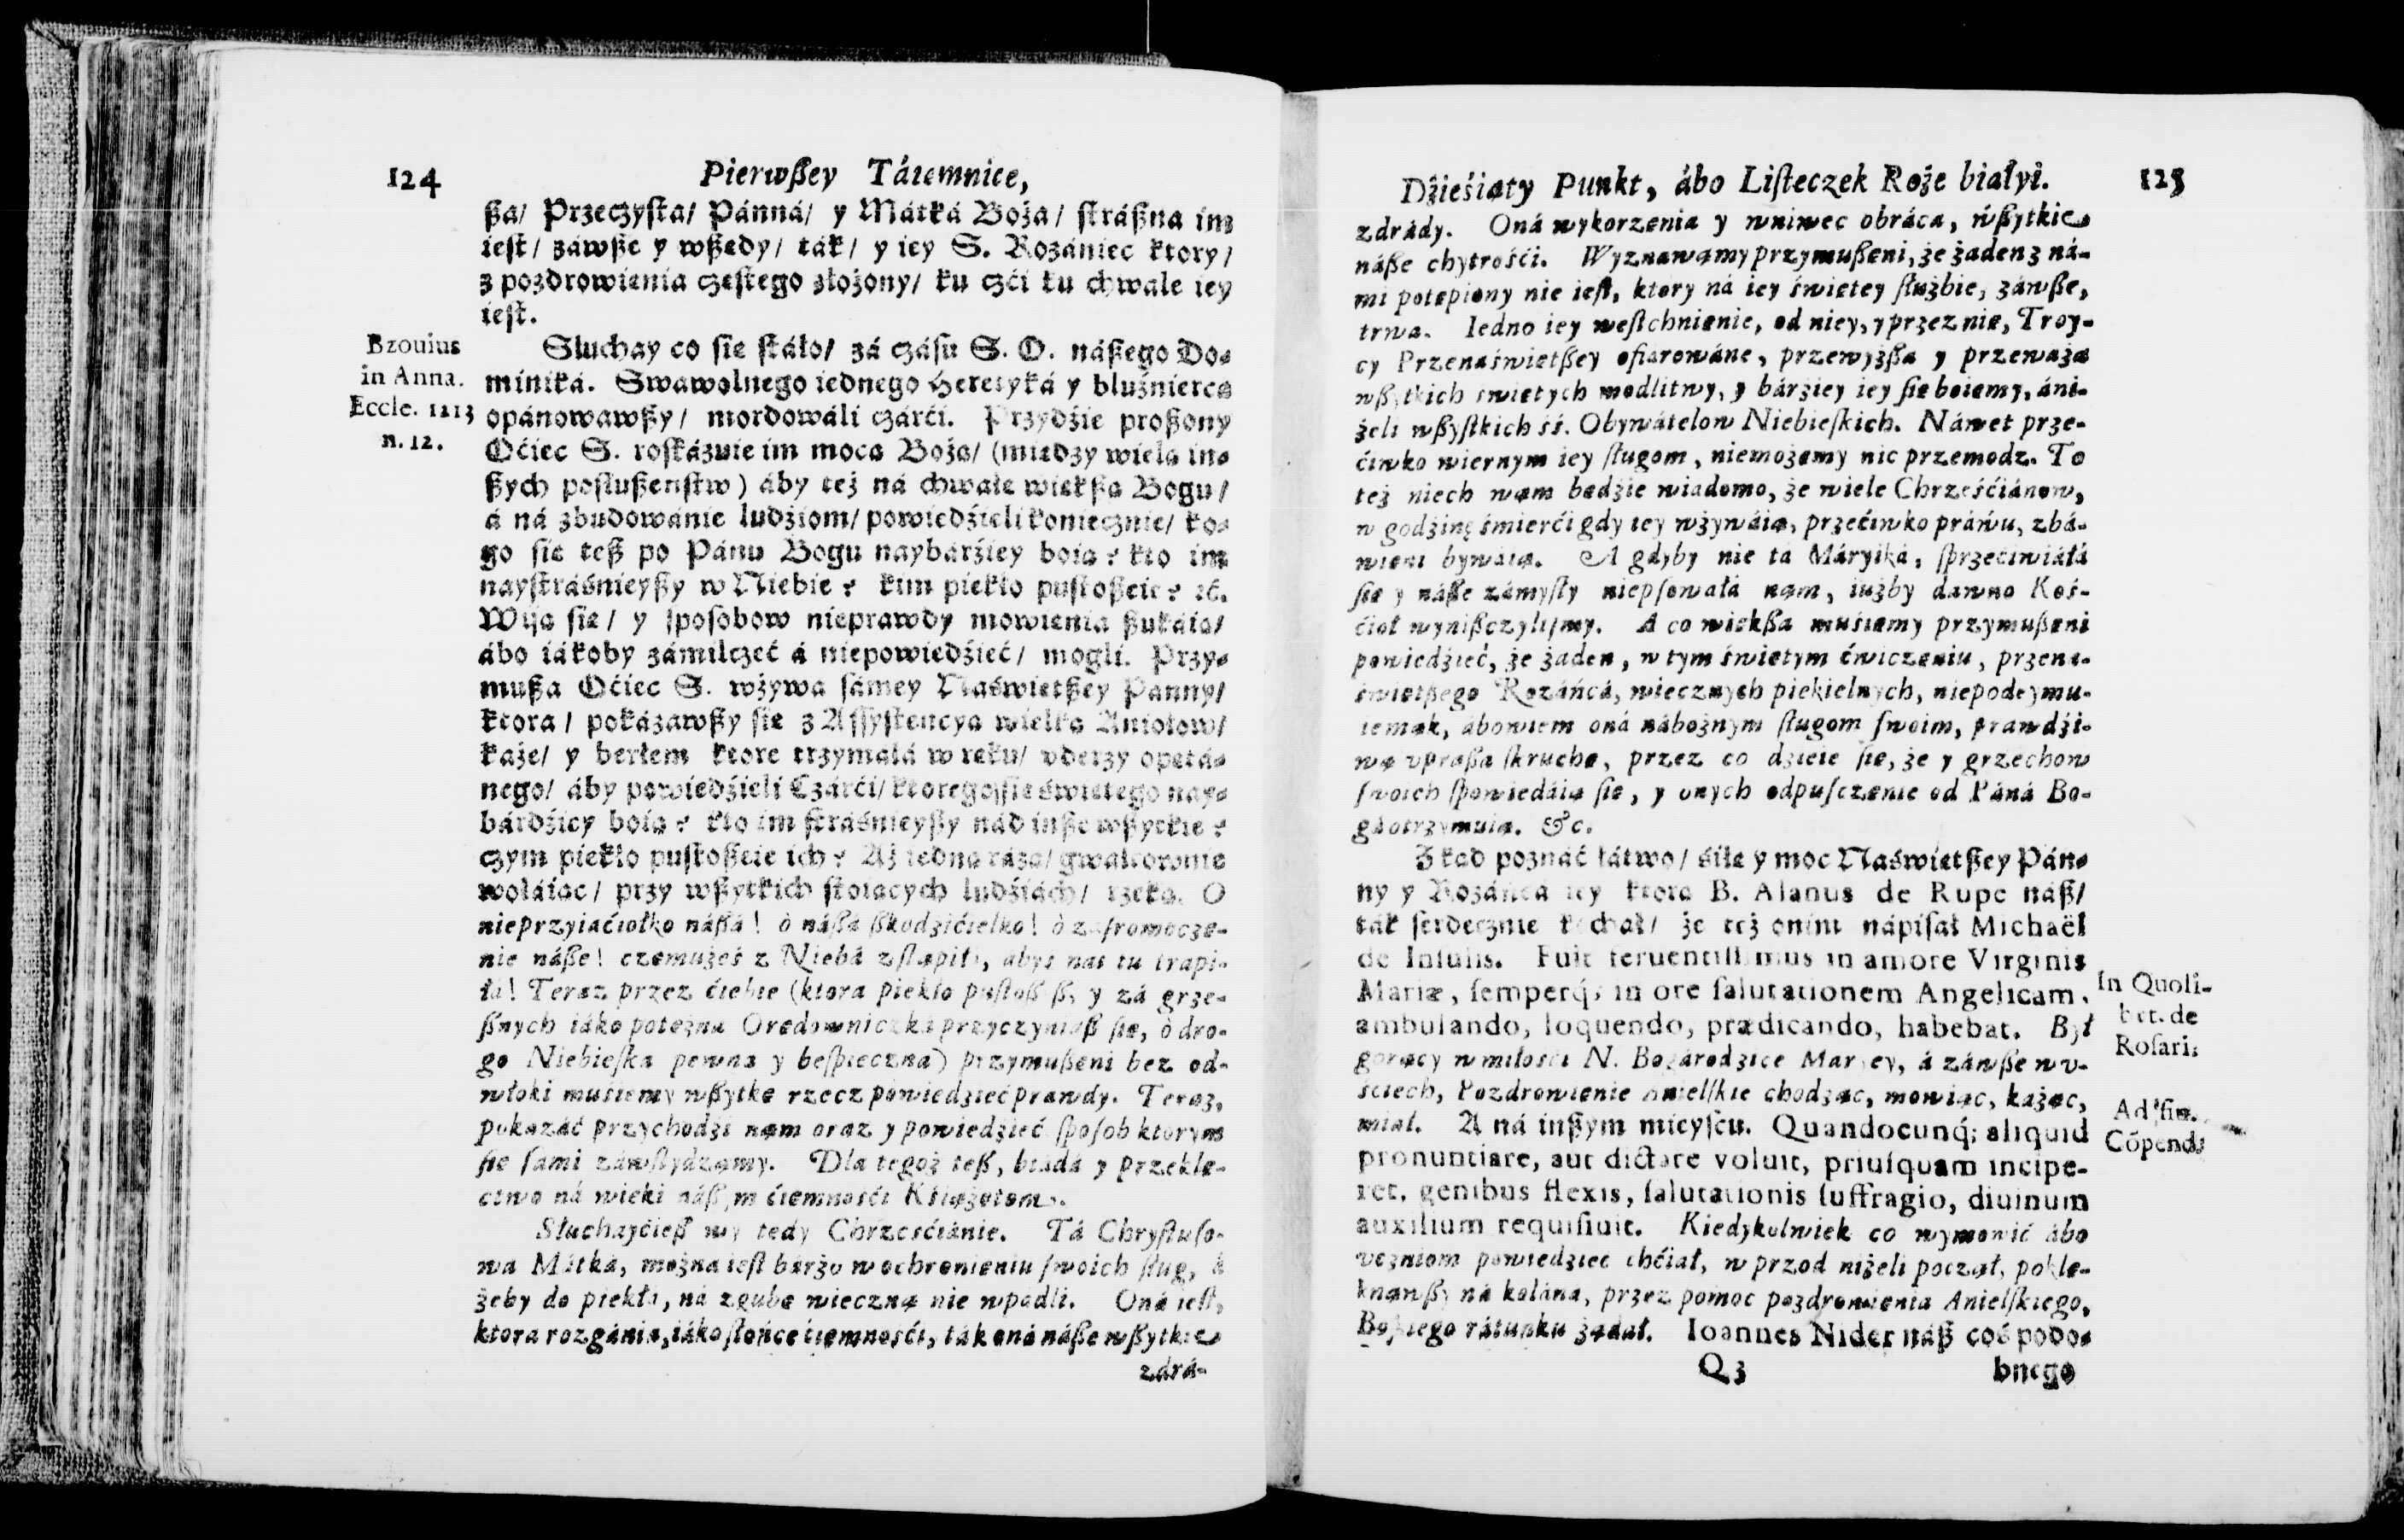 124
Pierwßey Táiemnice,
ßa/ Przeczysta/ Pánná/ y Mátká Boża/ stráßna im
iest/ záwße y wßędy/ ták/ y iey S. Rozániec ktory/
z pozdrowienia częstego złożony/ ku czći ku chwale iey
iest.
Bzouius
in Anna.
Eccle. 1213
n. 12.
Sluchay co sie stáło/ zá czásu S. O. nášego Do-
miniká. Swawolnego iednego Heretyká y bluźniercę
opánowawßy/ mordowáli czárći. Przydźie proßony
Oćiec S. roskázuie im mocą Bożą/ (miedzy wielą in-
ßych posłußeństw) áby też ná chwałę więkßą Bogu/
á ná zbudowánie ludźiom/ powiedźieli koniecznie/ ko-
go sie teß po Pánu Bogu naybárźiey boią? kto im
naystráśnieyßy w Niebie? kim piekło pustoßeie? ꝛc.
Wiją sie/ y sposobow nieprawdy mowienia ßukáią/
ábo iákoby zámilczeć á niepowiedźieć/ mogli. Przy-
mußa Oćiec S. wżywa sámey Naświętßey Panny/
ktora/ pokázawßy się z Assystencyą wielką Aniołow/
każe/ y berłem ktore trzymáłá w ręku/ vderzy opętá-
nego/ áby powiedźieli Czárći/ ktorego sie świętego nay-
bárdźiey boią? kto im stráśnieyßy nád inße wßytkie?
czym piekło pustoßeie ich? Aż iedną rázą/ gwałtownie
wołáiąc/ przy wßytkich stoiących ludźiách/ rzeką. O
nieprzyiaćiołko náßá! ò náßá ßkodźićielko! ò zasromocze-
nie náße! czemużeś z Niebá zstąpiłá, ábyś nas tu trapi-
łá! Teraz przez ćiebie (ktora piekło pustoß ß, y zá grze-
ßnych iáko potężna Orędowniczká przyczyniaß się, ò dro-
go Niebieska pewna y bespieczna) przymußeni bez od-
włoki muśiemy wßytkę rzecz powiedźieć prawdy. Teraz,
pokazáć przychodźi nąm oraz y powiedźieć sposob ktorym
się sami záwstydzamy. Dla tegoż teß, biádá y przeklę-
ctwo ná wieki náßym ćiemnośći Kśiążętom.
Słuchayćieß wy tedy Chrześćiánie. Tá Chrystuso-
wa Mátká, można iest bárzo w ochronieniu swoich sług, á
żeby do piekłá, ná zgubę wieczną nie wpádli. Oná iest,
ktora rozgánia, iáko słońce ćiemnośći, ták oná náße wßytkie
zdrá-
Dźieśiąty Punkt, ábo Listeczek Roże białyi.
125
zdrády. Oná wykorzenia y wniwec obráca, wßytkie
náße chytrośći. Wyznawamy przymußeni, że żaden z ná-
mi potępiony nie iest, ktory ná iey świętey służbie, záwße,
trwa. Iedno iey westchnienie, od niey, y przez nię, Troy-
cy Przenaświętßey ofiarowáne, przewyżßa y przeważa
wßytkich świętych modlitwy, y bárźiey iey się boiemy, áni-
żeli wßystkich śś. Obywátelow Niebieskich. Náwet prze-
ćiwko wiernym iey sługom, niemożemy nic przemodz. To
też niech wąm będźie wiadomo, że wiele Chrześćiánow,
w godźinę śmierći gdy iey wżywáią, przećiwko práwu, zbá-
wieni bywáią. A gdyby nie tá Máryiká, sprzećiwiáłá
się y náße zámysły niepsowałá nąm, iużby dawno Koś-
ćioł wynißczylismy. A co więkßa muśiemy przymußeni
powiedźieć, że żaden, w tym świętym ćwiczeniu, przena-
świętßego Rozáńcá, wiecznych piekielnych, niepodeymu-
ie mąk, ábowiem oná nábożnym sługom swoim, prawdźi-
wą vpraßa skruchę, przez co dzieie się, że y grzechow
swoich spowiedáią się, y onych odpusczenie od Páná Bo-
gá otrzymuią. &c.
Z kąd poznáć łátwo/ śiłę y moc Naświętßey Pán-
ny y Rozáńca iey ktorą B. Alanus de Rupe náß/
ták serdecznie kochał/ że też onim nápisał Michaël
de Insulis. Fuit feruentissimus in amore Virginis
Mariæ, semperq́; in ore salutationem Angelicam,
ambulando, loquendo, prædicando, habebat. Był
gorący w miłośći N. Bogárodzice Maryey, á záwße w v-
śćiech, Pozdrowienie Anielskie chodząc, mowiąc, każąc,
miał. A ná inßym mieyscu. Quandocunq́; aliquid
pronuntiare, aut dictare voluit, priusquam incipe-
ret, genibus flexis, salutationis suffragio, diuinum
auxilium requisiuit. Kiedykolwiek co wymowić ábo
vczniom powiedziec chćiał, w przod niżeli począł, poklę-
knąwßy ná kolána, przez pomoc pozdrowienia Anielskiego,
Boskiego rátunku żądał. Ioannes Nider náß coś podo-
In Quoli-
bet. de
Rosari:
Ad fin.
Cōpend:
Q3
bnego